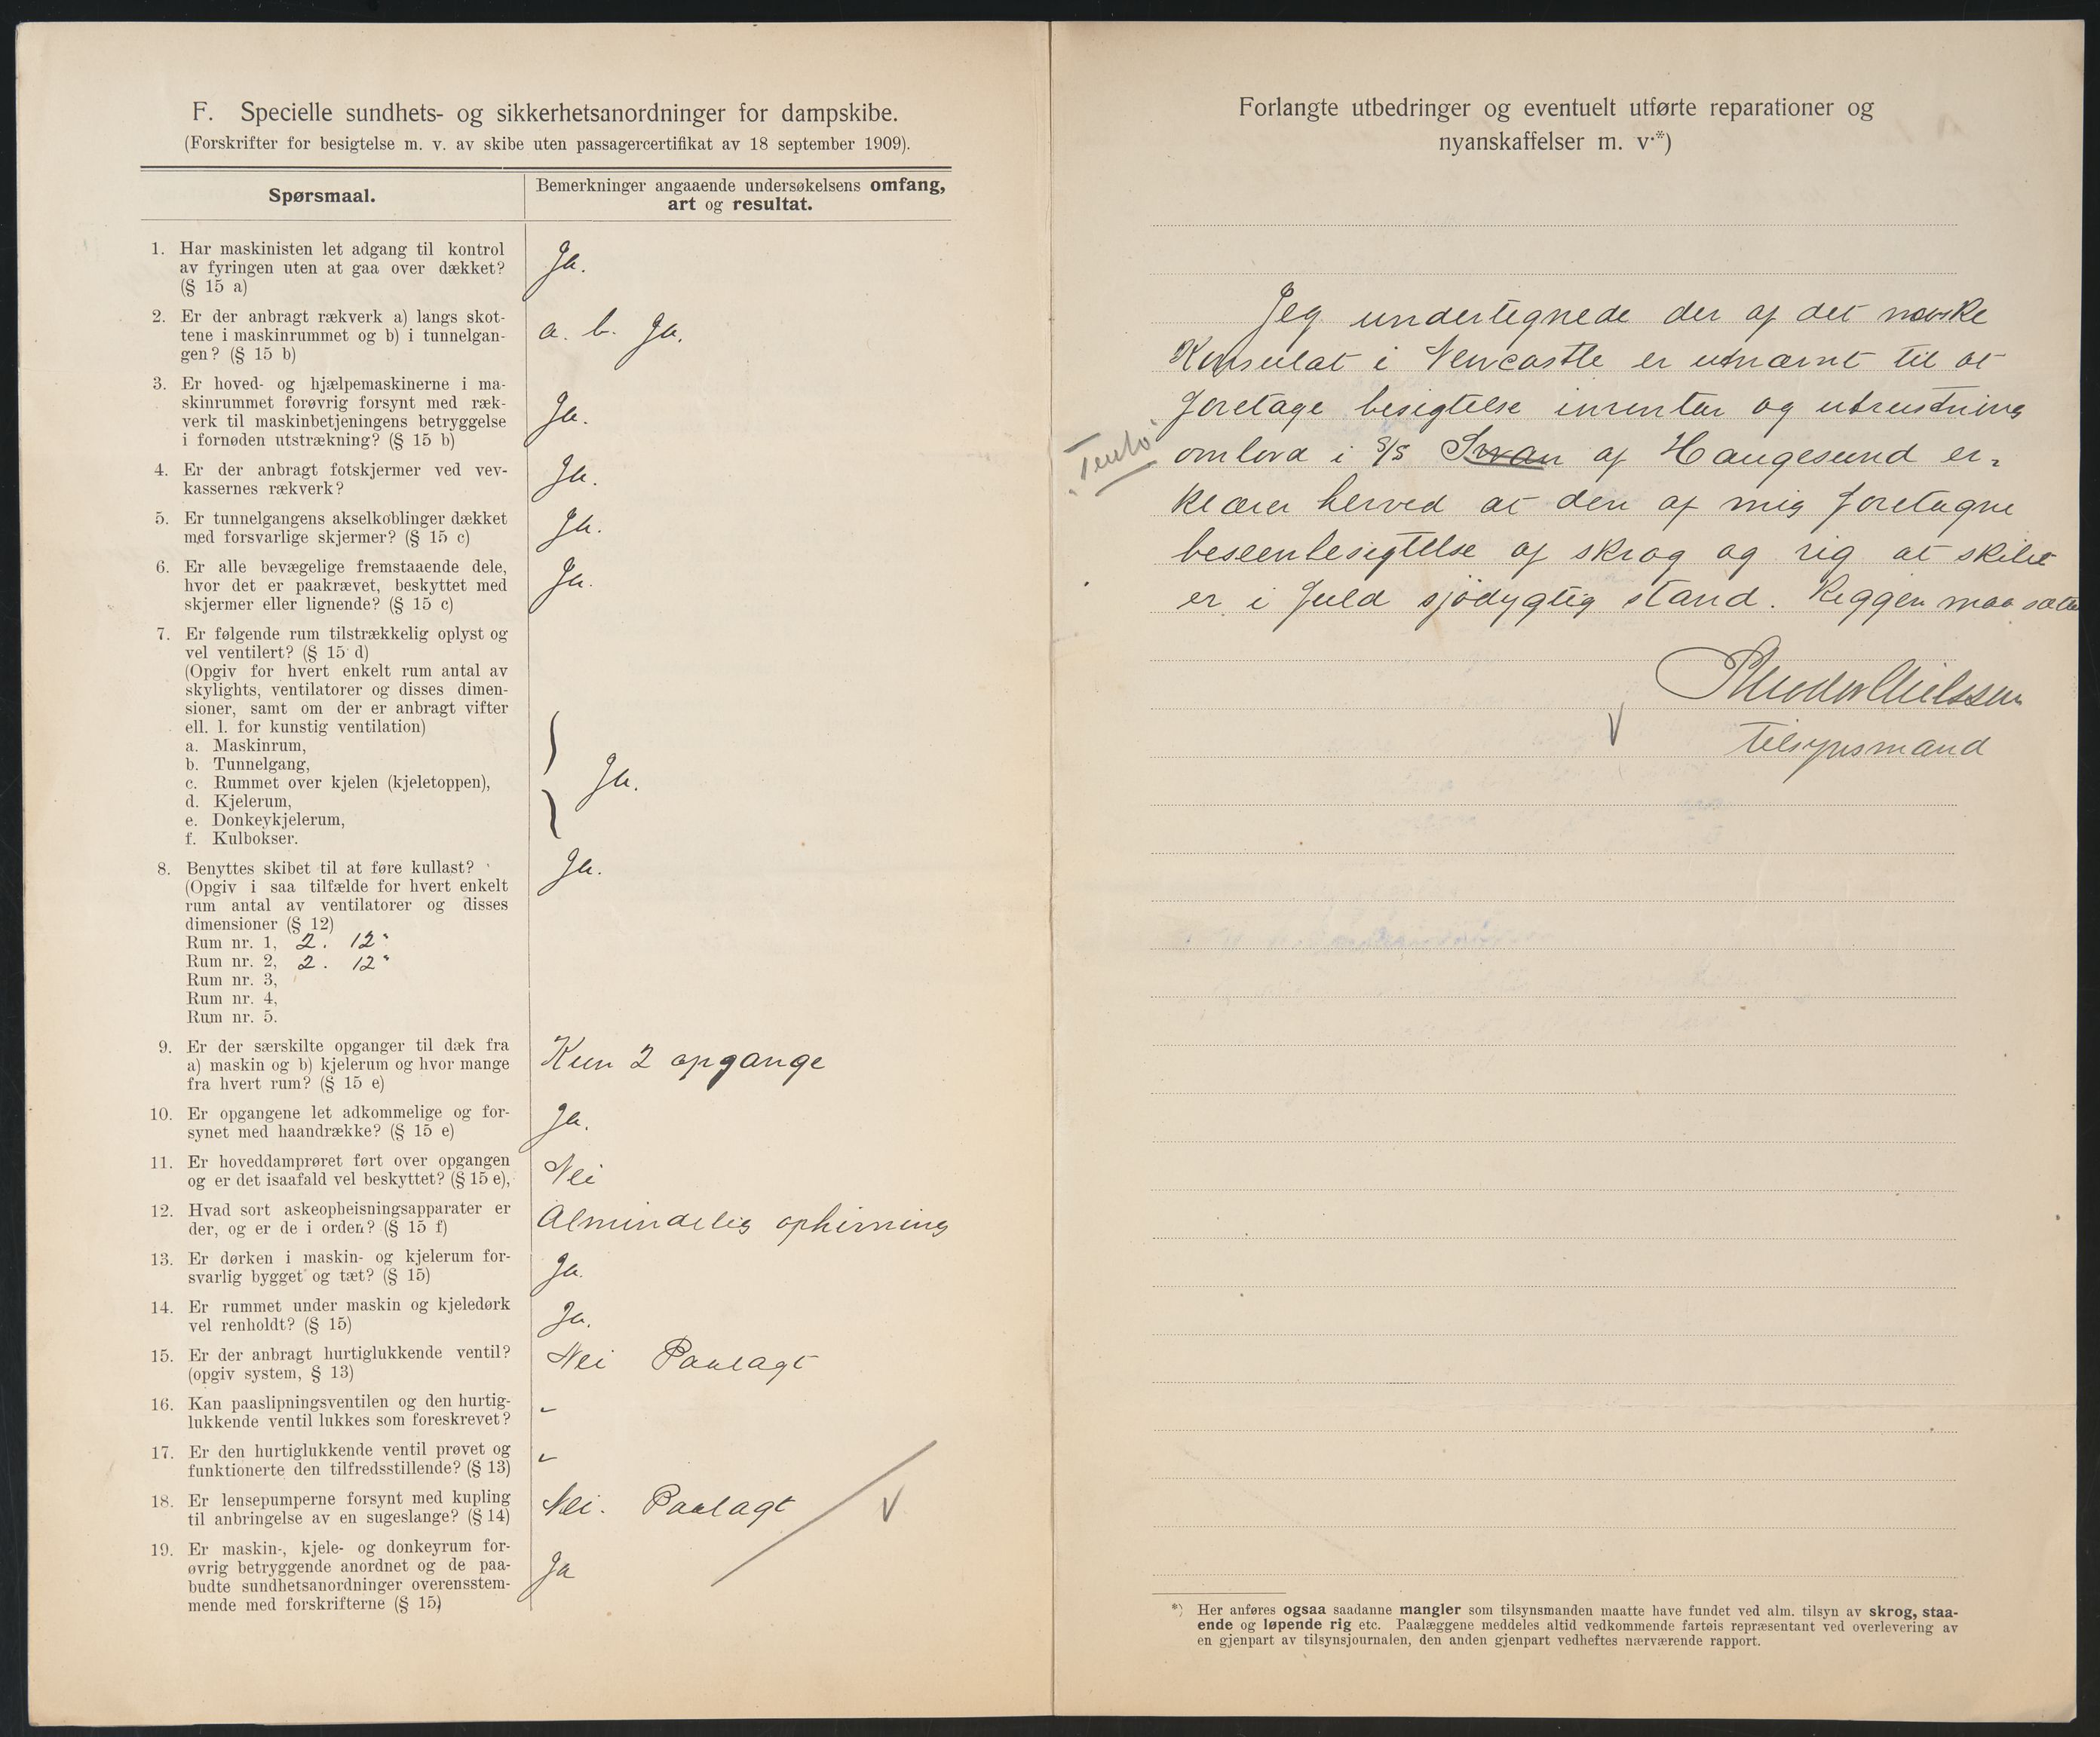 F. Specielle sundhets- og sikkerhetsanordninger for dampskibe.
(Forskrifter for besigtelse m. v. av skibe uten passagercertifikat av 18 september 1909).
Spørsmaal.
Bemerkninger angaaende undersøkelsens omfang,
art og resultat.
1. Har maskinisten let adgang til kontrol
av fyringen uten at gaa over dækket?
(§ 15 a)
Ja.
2. Er der anbragt rækverk a) langs skot-
tene i maskinrummet og b) i tunnelgan-
gen? (§ 15 b)
a. b. Ja.
3. Er hoved- og hjælpemaskinerne i ma-
skinrummet forøvrig forsynt med ræk-
verk til maskinbetjeningens betryggelse
i fornøden utstrækning? (§ 15 b)
Ja.
4. Er der anbragt fotskjermer ved vev-
kassernes rækverk?
Ja.
5. Er tunnelgangens akselkoblinger dækket
med forsvarlige skjermer? (§ 15 c)
Ja.
6. Er alle bevægelige fremstaaende dele,
hvor det er paakrævet, beskyttet med
skjermer eller lignende? (§ 15 c)
Ja.
7. Er følgende rum tilstrækkelig oplyst og
vel ventilert? (§ 15 d)
(Opgiv for hvert enkelt rum antal av
skylights, ventilatorer og disses dimen-
sioner, samt om der er anbragt vifter
ell. l. for kunstig ventilation)
a. Maskinrum,
b. Tunnelgang,
c. Rummet over kjelen (kjeletoppen),
d. Kjelerum,
e. Donkeykjelerum,
f. Kulbokser.
Ja.
8. Benyttes skibet til at føre kullast?
(Opgiv i saa tilfælde for hvert enkelt
rum antal av ventilatorer og disses
dimensioner (§ 12)
Ja.
Rum nr. 1, 2. 12"
Rum nr. 2, 2. 12"
Rum nr. 3,
Rum nr. 4,
Rum nr. 5.
9. Er der særskilte opganger til dæk fra
a) maskin og b) kjelerum og hvor mange
fra hvert rum? (§ 15 e)
Kun 2 opgange
10. Er opgangene let adkommelige og for-
synet med haandrække? (§ 15 e)
Ja.
11. Er hoveddamprøret ført over opgangen
og er det isaafald vel beskyttet? (§ 15 e),
Nei
12. Hvad sort askeopheisningsapparater er
der, og er de i orden? (§ 15 f)
Almindelig ophivning
13. Er dørken i maskin- og kjelerum for-
svarlig bygget og tæt? (§ 15)
Ja.
14. Er rummet under maskin og kjeledørk
vel renholdt? (§ 15)
Ja.
15. Er der anbragt hurtiglukkende ventil?
(opgiv system, § 13)
Nei Paalagt
16. Kan paaslipningsventilen og den hurtig-
lukkende ventil lukkes som foreskrevet?
17. Er den hurtiglukkende ventil prøvet og
funktionerte den tilfredsstillende? (§ 13)
18. Er lensepumperne forsynt med kupling
til anbringelse av en sugeslange? (§ 14)
Nei. Paalagt
19. Er maskin-, kjele- og donkeyrum for-
øvrig betryggende anordnet og de paa-
budte sundhetsanordninger overensstem-
mende med forskrifterne (§ 15)
Ja
Forlangte utbedringer og eventuelt utførte reparationer og
nyanskaffelser m. v.*)
Jeg undertegnede der af det norske
Konsulat i Newcastle er utnævnt til at
foretage besigtelse inventar og utrustning
ombord i S/S Svan af Haugesund er-
klærer herved at den af mig foretagne
beseenbesigtelse af skrog og rig at skibet
er i fuld sjödygtig stand. Riggen maa sættes
Nielssen
Tilsynsmand
*) Her anføres ogsaa saadanne mangler som tilsynsmanden maatte have fundet ved alm. tilsyn av skrog, staa-
ende og løpende rig etc. Paalæggene meddeles altid vedkommende fartøis repræsentant ved overlevering av
en gjenpart av tilsynsjournalen, den anden gjenpart vedheftes nærværende rapport.